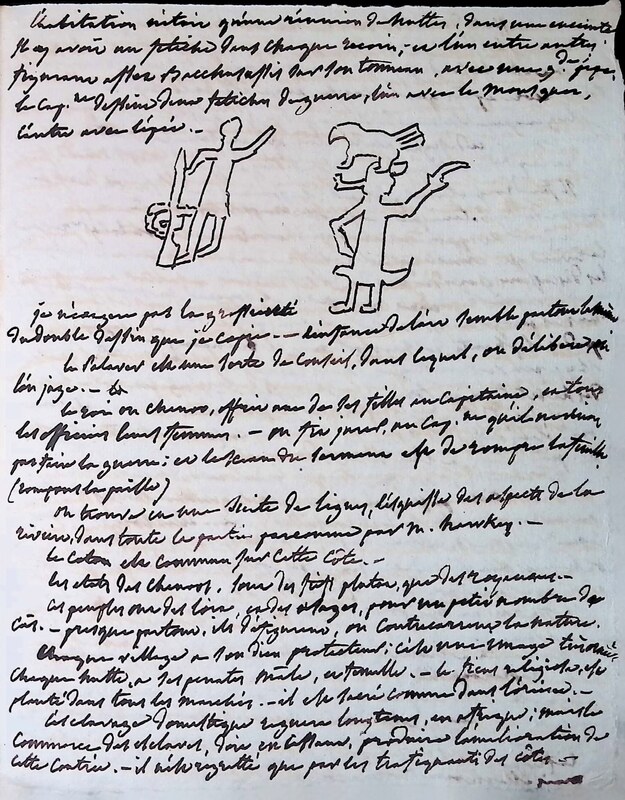 l'habitation n'étoit qu'une réunion de huttes, dans une enceinte
Il y avoit un fétiche dans chaque recoin, et l'un entre autres
figurant assez Bacchus assis sur son tonneau, avec une gde. pipe,
le Capne. dessine deux fétiches de guerre, l'un avec le mousquet,
l'autre avec l'épée. —
je n'exagere pas la grossièreté
du double dessin que je copie — l'enfance de l'art semble partout la même
le Palaver est une sorte de Conseil, dans lequel, on délibère, ou
l'on juge. —
le roi ou chenoo, offrit une de ses filles au Capitaine, et tous
les officiers leurs femmes. — on fit jurer, au Cap. ne qu'il ne venoit
pas faire la guerre; et le sceau du serment est de rompre la feuille
(rompons la paille)
on trouve en une suite de lignes, l'esquisse des aspects de la
rivière, dans toute la partie parcourue par M. Hawkey. —
le Coton est commun sur Cette Côte. —
les états des chenoos, sont des fiefs plutot, que des royaumes. —
Ces peuples ont des loix, et des usages, pour un petit nombre de
Cas. — presque partout, ils défigurent, ou Contrarient la nature.
Chaque village a son dieu protecteur; c'est une image
chaque hutte, a ses penates mâle, et femelle. — le ficus religiosa, est
planté dans tous les marchés. — il est sacré comme dans l'orient. —
L'esclavage domestique regnera longtems, en affrique; mais le
Commerce des esclaves, doit en Cessant, produire l'amélioration de
cette Contrée. — il n'est regretté que par les trafiquants des côtes. —